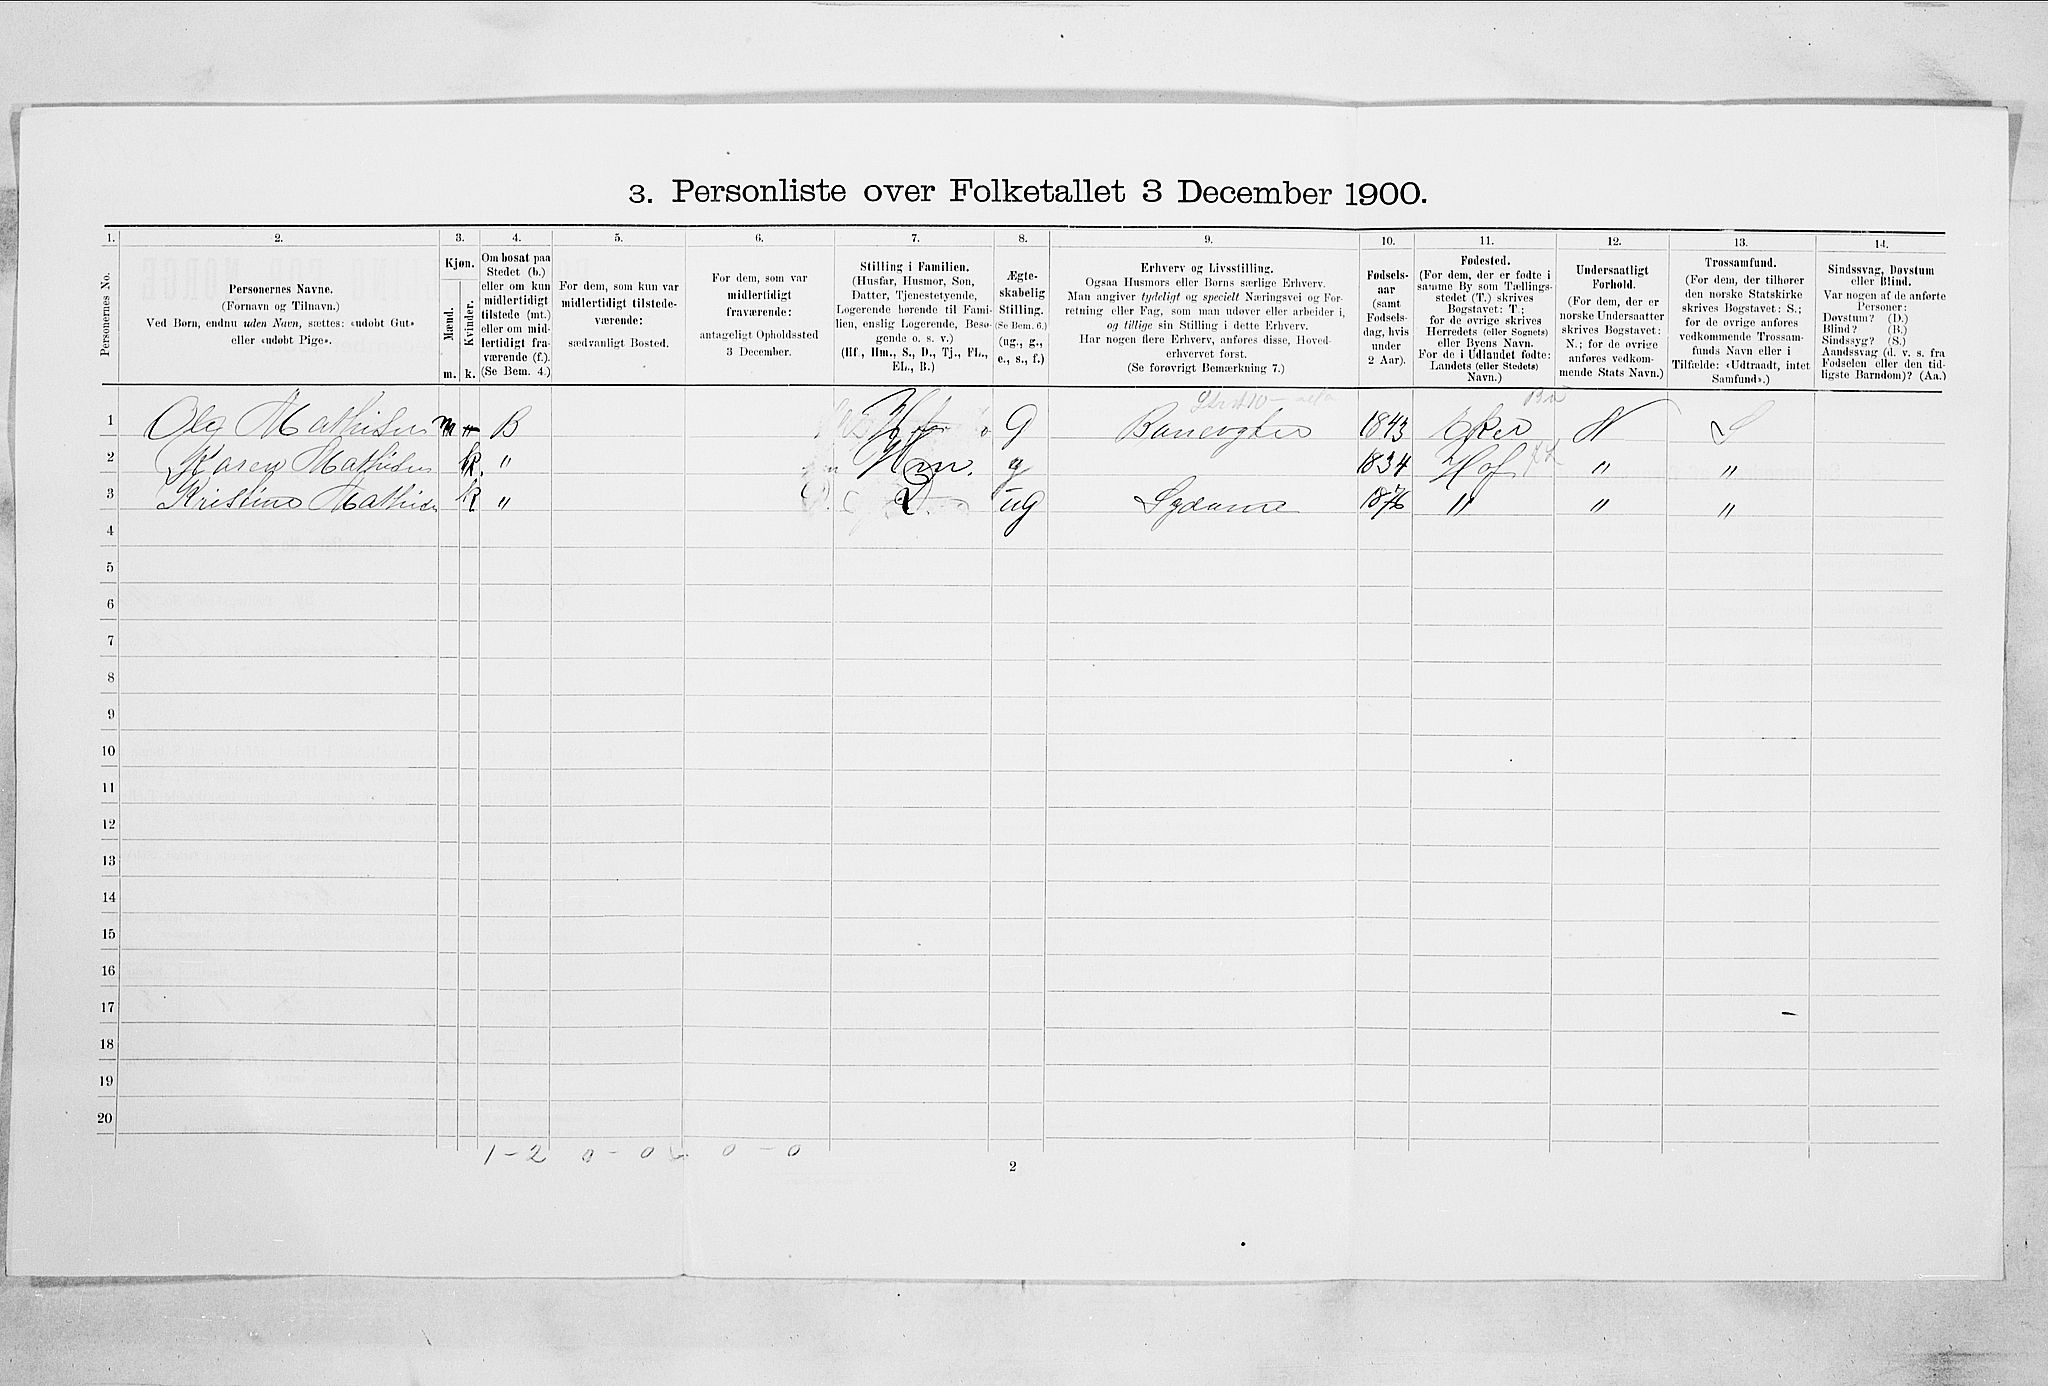 3. Personliste over Folketallet 3 December 1900.
1. 2. 3. 4. 5. 6. 7. 8. 9. 10. 11. 12. 13. 14.
Personernes No.
Personernes Navne.
(Fornavn og Tilnavn.)
Ved Børn, endnu uden Navn, sættes: «udøbt Gut»
eller «udøbt Pige».
Kjøn.
Mænd.
Kvinder.
m. k.
Om bosat paa
Stedet (b.)
eller om kun
midlertidigt
tilstede (mt.)
eller om mid-
lertidigt fra-
værende (f.).
(Se Bem. 4.)
For dem, som kun var
midlertidigt tilstede-
værende:
sædvanligt Bosted.
For dem, som var
midlertidigt
fraværende:
antageligt Opholdssted
3 December.
Stilling i Familien.
(Husfar, Husmor, Søn,
Datter, Tjenestetyende,
Logerende hørende til Fami-
lien, enslig Logerende, Besø-
gende o. s. v.)
(Hf., Hm., S., D., Tj., FL.,
EL., B.)
Ægte-
skabelig
Stilling.
(Se Bem. 6.)
(ug., g.,
e., s., f.)
Erhverv og Livsstilling.
Ogsaa Husmors eller Børns særlige Erhverv.
Man angiver tydeligt og specielt Næringsvei og For-
retning eller Fag, som man udøver eller arbeider i,
og tillige sin Stilling i dette Erhverv.
Har nogen flere Erhverv, anføres disse, Hoved-
erhvervet først.
(Se forøvrigt Bemærkning 7.)
Fødsels-
aar
(samt
Fødsels-
dag, hvis
under
2 Aar).
Fødested.
(For dem, der er fødte i
samme By som Tællings-
stedet (T.) skrives
Bogstavet: T.;
for de øvrige skrives
Herredets (eller Sognets)
eller Byens Navn.
For de i Udlandet fødte:
Landets (eller Stedets)
Navn.)
Undersaatligt
Forhold.
(For dem, der er
norske Undersaatter
skrives Bogstavet:
N.; for de øvrige
anføres vedkom-
mende Stats Navn.)
Trossamfund.
(For dem, der tilhører
den norske Statskirke
skrives Bogstavet: S.;
for de øvrige anføres
vedkommende Trossam-
funds Navn eller i
Tilfælde: «Udtraadt, intet
Samfund».)
Sindssvag, Døvstum
eller Blind.
Var nogen af de anførte
Personer:
Døvstum? (D.)
Blind? (B.)
Sindssyg? (S.)
Aandssvag (d. v. s. fra
Fødselen eller den tid-
ligste Barndom)? (Aa.)
1 Ole Mathisen m B G Banevogter 1843 Eker N S
2 Karen Mathisen k. " Hm. g 1834 Hof " "
3 Kristine Mathisen k " D. ug Sydame 1876 " " "
4
5
6
7
8
9
10
11
12
13
14
15
16
17
18
19
20
1 - 2 0 - 0 0 - 0
2